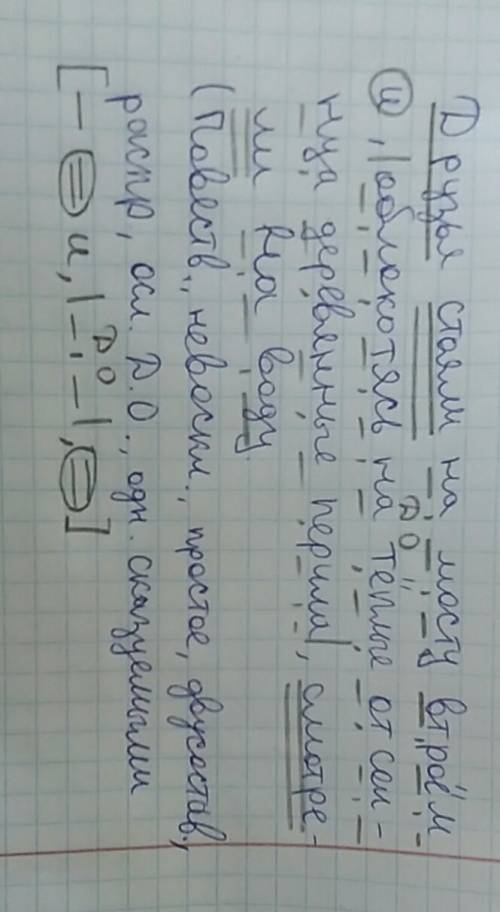 Друзья стояли на мосту втроём
и, |облокотясь на тёплые от сол-
нца деревянные перила|, смотре-
ли на воду.
(Повеств., невоскл., простое, двусостав.,
распр, осл. Д.О., одн. сказуемыми
[— = и, |—.—|, =]
ДО
ДО